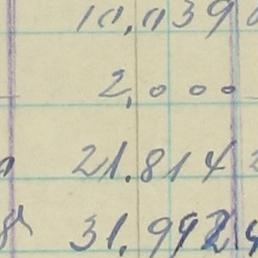 10,039
2,000
21.814
31.992